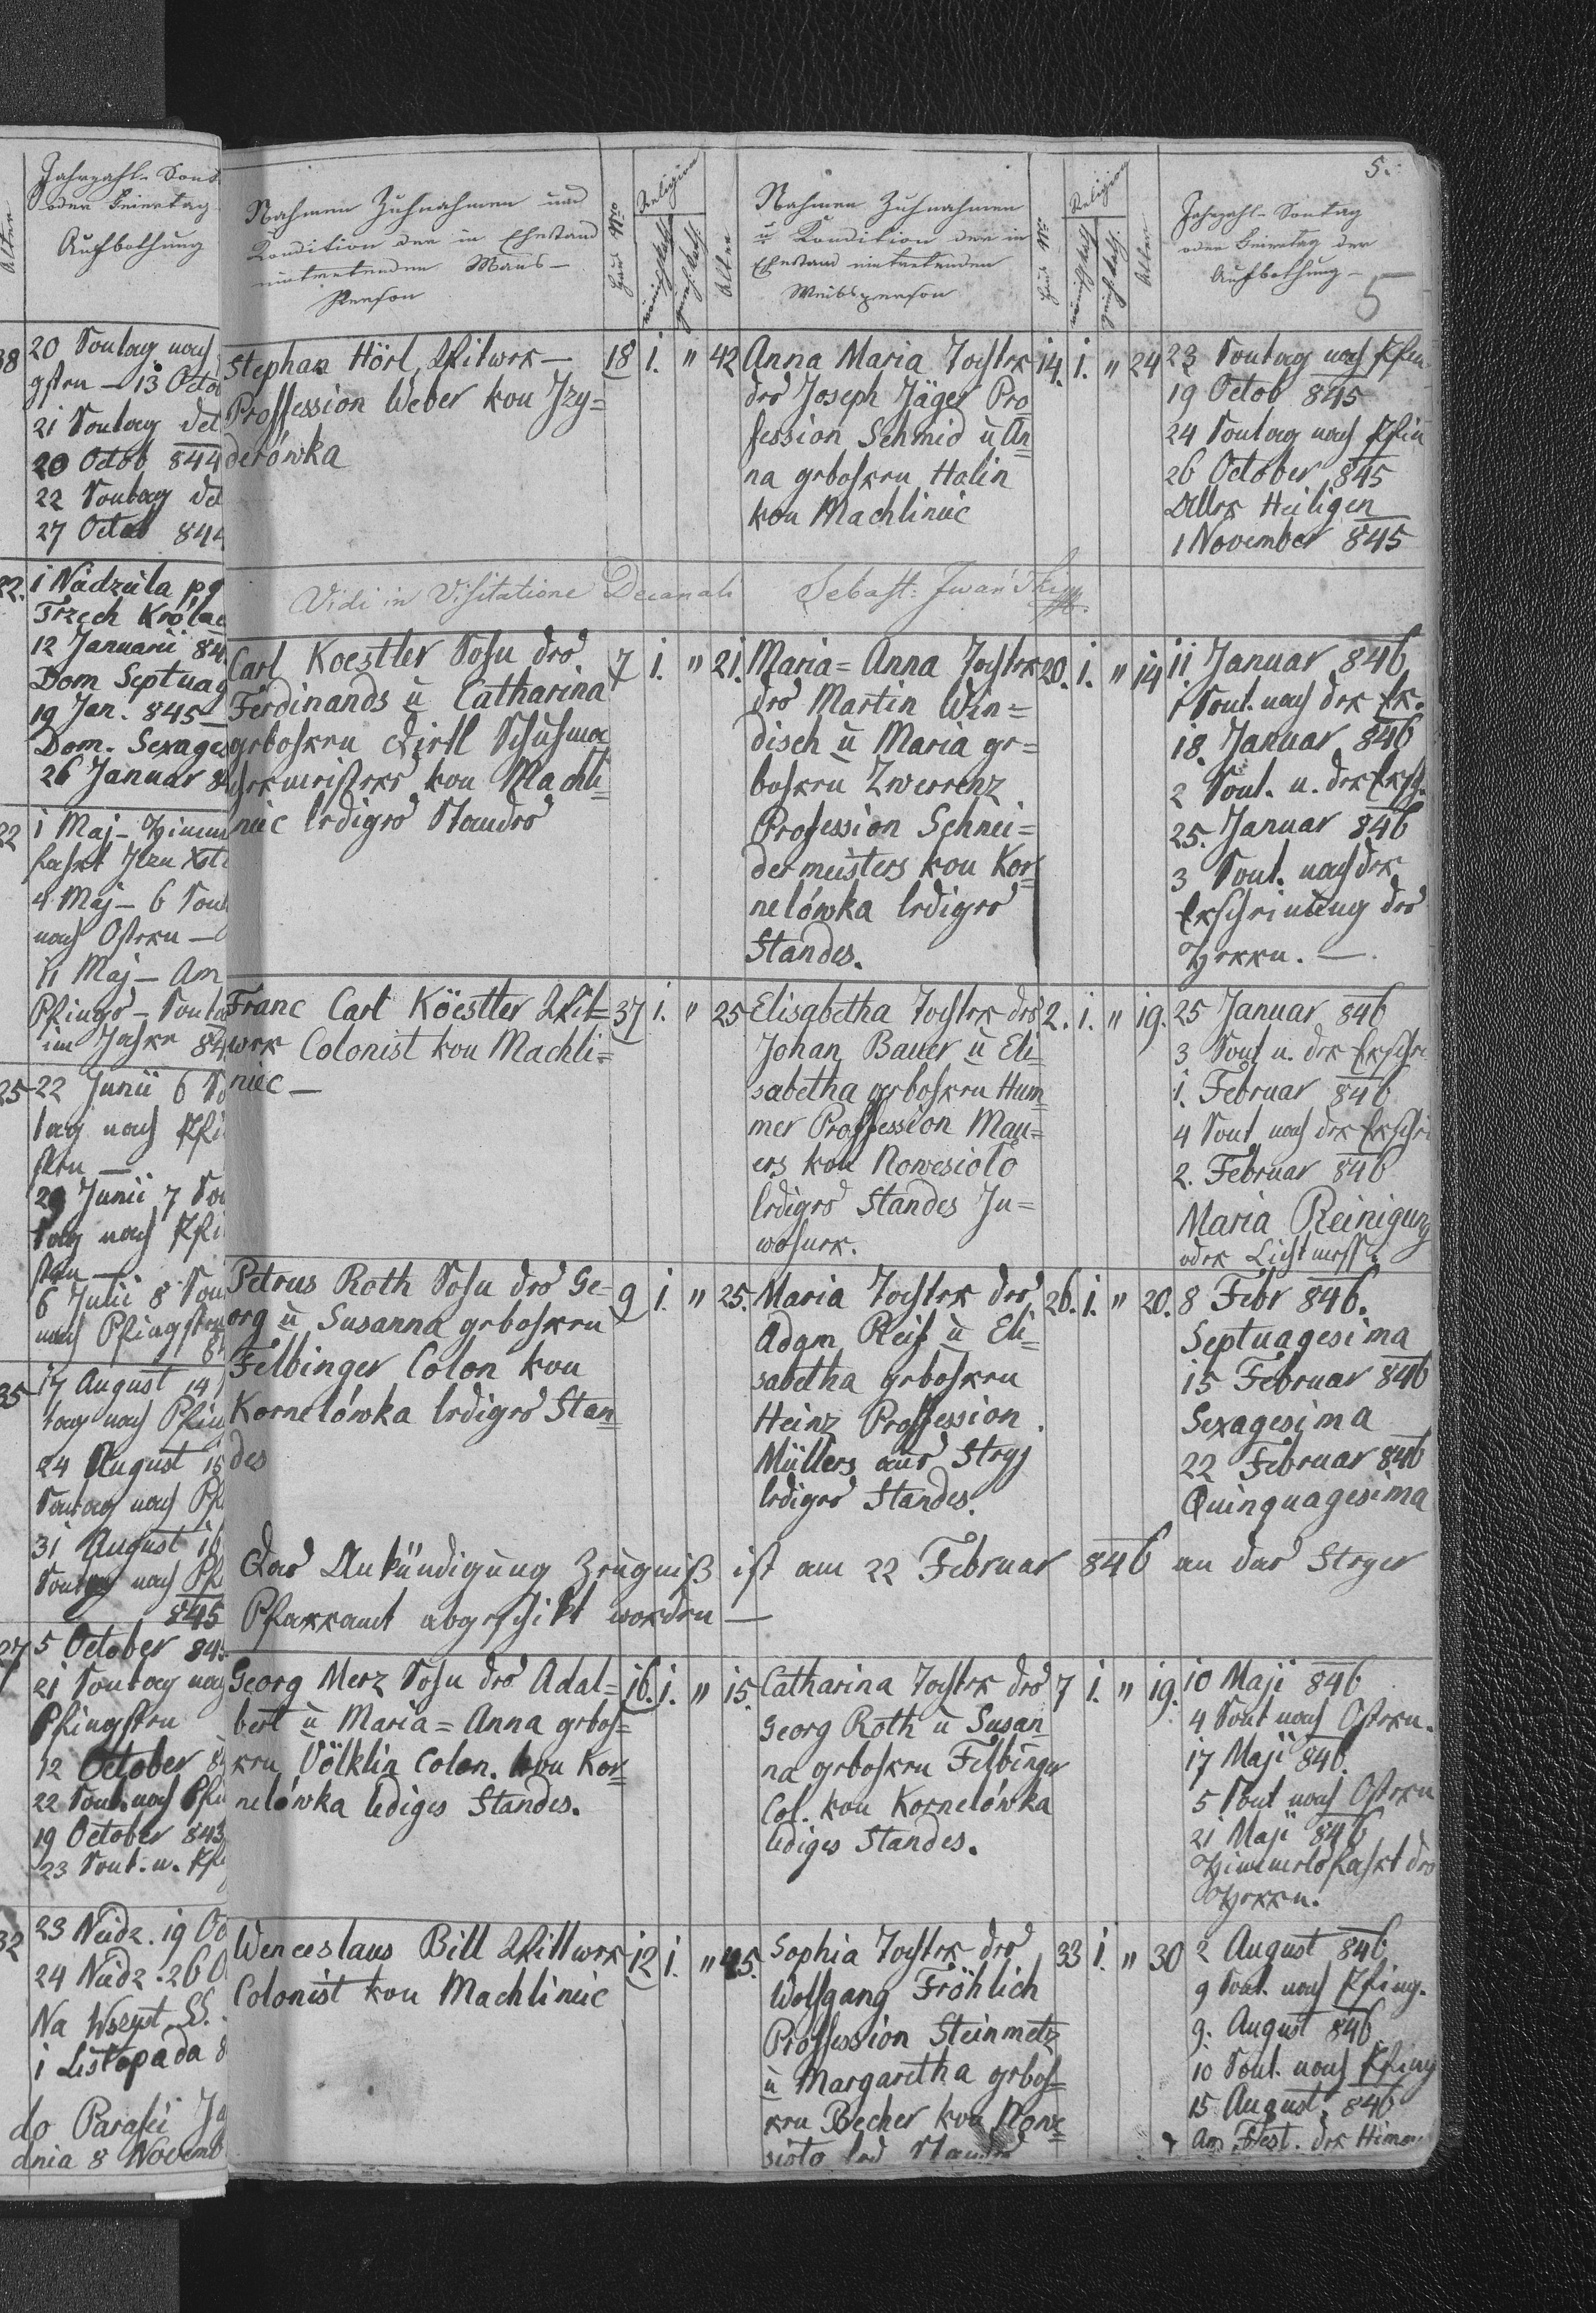 Jahrzahl-Sont
oder Feiertag
Aufbothung
Alter
38
20 Sontag nach
gsten — 13 Octo
21 Sontag det
20 Octob 844
22 Sontag det
27 Octob 844
22.
1 Niedziela po
Trzech Królac
12 Januarii 84
Dom Septuag
19 Jan. 845—
Dom. Sexages
26 Januar 8
22
1 Maj — Himm
fahrt
4 Maj — 6 Sont
nach Ostern —
11 Maj — Am
Pfings-Sonta
im Jahre 84
25
22 Junii 6 So
tag nach Pfi
sten —
29 Junii 7 Son
tag nach Pfi
sten —
6 Julii 8 Son
nach Pfingsten
35
17 August 14
tag nach Pfin
24 August 15
Sontag nach Pf
31 August 16
Sontag nach Pf
845
27
5 October 845
21 Sontag nach
Pfingsten
12 October 8
22 Sont. nach Pfi
19 October 845
23 Sont. n. Pfi
32
23 Niedz. 19 Oc
24 Niedz. 26 O
Na Wszyst. SS.
1 Listopada 8
do Parafii
dnia 8 Novemb
5.
Nahmen Zuhnahmen und
Kondition der in Ehestand
eintretenden Mans-
Person
Haus Nro
Religion
Alter
Nahmen Zuhnahmen
u Kondition der in
Ehestand eintretenden
Weibsperson
Haus Nr
Religion
Alter
Jahrzahl-Sontag
oder Feiertag der
Aufbothung —
5
Stephan Hörl, Witwer — 18 1. " 42
Profession Weber von Izy=
derówka
Anna Maria Tochter 14. 1. " 24
des Joseph Jäger Pro
fession Schmid ü An=
na gebohren Halin
von Machliniec
23 Sontag nach Pfin
19 Octob 845
24 Sontag nach Pfin
26 October 845
Aller Heiligen
1 November 845
Vidi in Visitatione Decanali Sebast: Iwański
Carl Koestler Sohn des 7 1. " 21.
Ferdinands ü Catharina
gebohren Dirtl Schuhma
chermeisters von Machli=
niec lediges Standes
Maria=Anna Tochter 20. 1. " 19
des Martin Win=
disch ü Maria ge=
bohren Zwerrenz
Profession Schnei=
dermeisters von Kor=
nelówka lediges
Standes.
11 Januar 846
1 Sont. nach der Er.
18. Januar 846
2 Sont. n. der Ersch.
25. Januar 846
3 Sont. nach der
Erscheinung des
Herrn. —
Franc Carl Köestler Wit= 37 1. " 25
wer Colonist von Machli=
niec —
Elisabetha Tochter des 2. 1. " 19.
Johan Bauer ü Eli=
sabetha gebohren Hum=
mer Profession Mau=
ers von Nowesioło
lediges Standes In=
wohner.
25 Januar 846
3 Sont n. der Erschei
1. Februar 846
4 Sont nach der Erschei
2. Februar 846
Maria Reinigung
oder Lichtmess.
Petrus Roth Sohn des Ge= 9 1. " 25.
org ü Susanna gebohren
Felbinger Colon von
Kornelówka lediges Stan=
des
Maria Tochter des 26. 1. " 20.
Adam Reif ü Eli=
sabetha gebohren
Heinz Profession
Müllers aus Stryj
lediges Standes.
8 Febr 846.
Septuagesima
15 Februar 846
Sexagesima
22 Februar 846
Quinquagesima
Das Ankündigung Zeugniß ist am 22 Februar 846 an das Stryer
Pfarramt abgeschikt worden —
Georg Merz Sohn des Adal= 16. 1. " 15.
bert ü Maria=Anna geboh=
ren Völklin Colon. von Kor=
nelówka lediges Standes.
Catharina Tochter des 7 1. " 19.
Georg Roth ü Susan=
na gebohren Felbinger
Col. von Kornelówka
lediges Standes.
10 Maji 846
4 Sont nach Ostern.
17 Maji 846.
5 Sont nach Ostern
21 Maji 846
Himmelsfahrt des
Herrn.
Wenceslaus Bill Wittwer 12 1. " 45.
Colonist von Machliniec
Sophia Tochter des 33 1. " 30
Wolfgang Fröhlich
Profession Steinmetz
ü Margaretha geboh=
ren Becher von Nowe=
sioło led Standes
2 August 846
9 Sont. nach Pfing.
9. August 846
10 Sont. nach Pfing
15 August. 846
Am Fest. der Himm